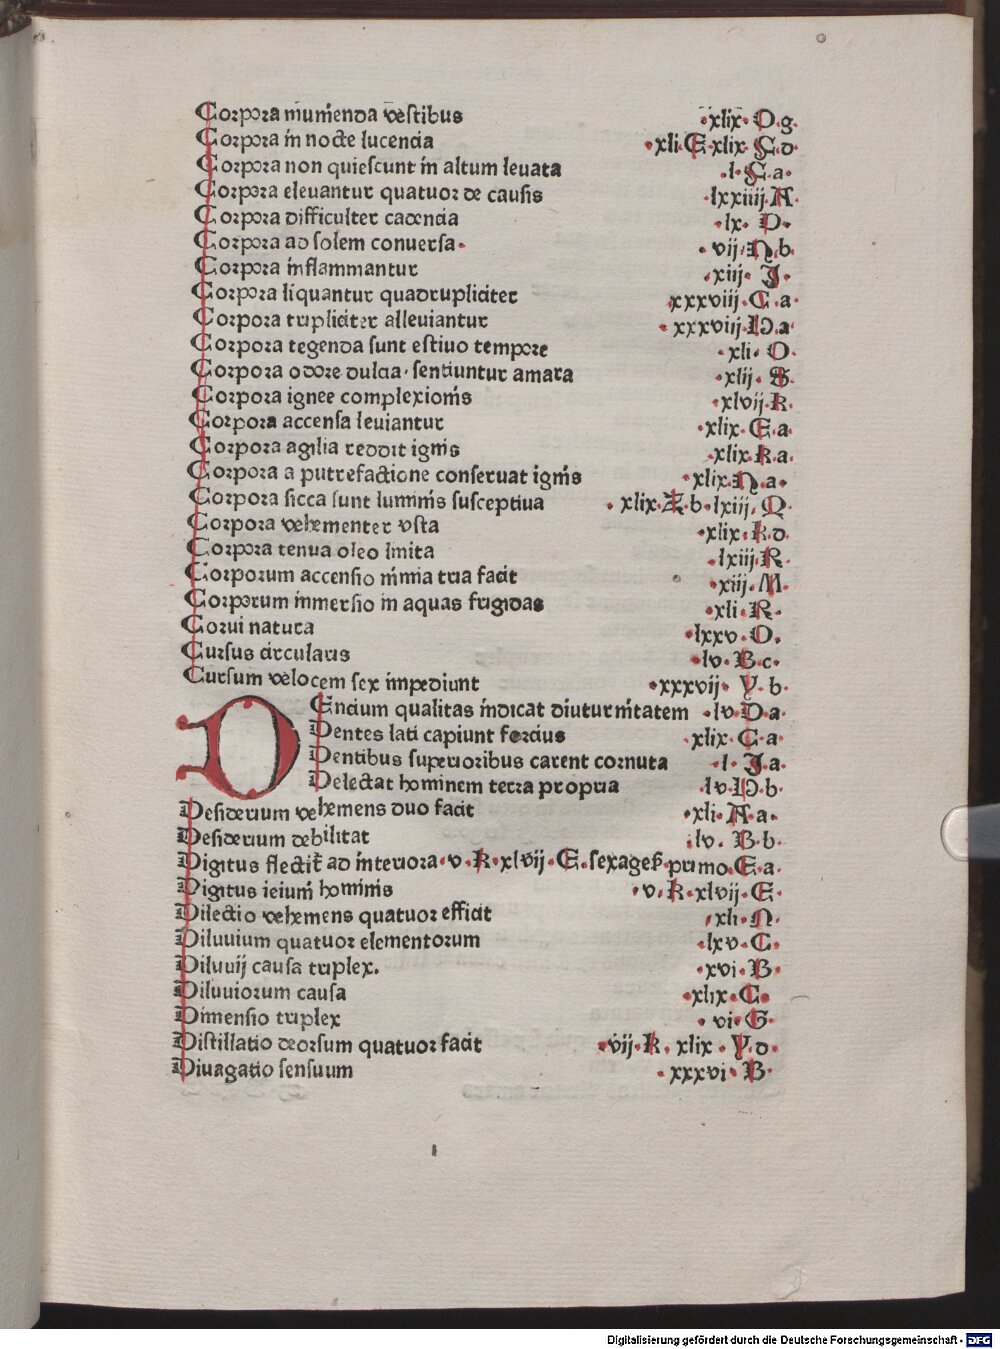 Corpora muniẽnda vestibus ·xlix· O·g·
Corpora in nocte lucencia ·xli·E·xlix·C·d·
Corpora non quiescunt in altum leuata ·l·C·a·
Corpora eleuantur quatuor de causis ·lxxiiij·A·
Corpora difficulter cadencia ·lx· D·
Corpora ad solem conuersa· ·vij·N·b·
Corpora inflammantur ·xiij· I·
Corpora liquantur quadrupliciter ·xxxviij·C·a·
Corpora tripliciter alleuiantur ·xxxviij·D·a·
Corpora tegenda sunt estiuo tempore ·xli· O·
Corpora odore dulcia· sentiuntur amara ·xlij· S·
Corpora ignee complexionis ·xlvij·R·
Corpora accensa leuiantur ·xlix· E·a·
Corpora agilia reddit ignis ·xlix·R·a·
Corpora a putrefactione conseruat ignis ·xlix·N·a·
Corpora sicca sunt luminis susceptiua ·xlix·Z·b·lxiij·Q·
Corpora vehementer vsta ·xlix·R·d·
Corpora tenua oleo linita ·lxiij·R·
Corporum accensio nimia tria facit ·xiij·M·
Corporum immersio in aquas frigidas ·xli·R·
Corui natura ·lxxv·O·
Cursus circularis ·lv·B·c·
Cursum velocem sex impediunt ·xxxvij· Y·b·
DEncium qualitas indicat diuturnitatem ·lv·D·a·
Dentes lati capiunt forcius ·xlix·C·a·
Dentibus superioribus carent cornuta ·l· I·a·
Delectat hominem terra propria ·lv·D·b·
Desiderium vehemens duo facit ·xli·A·a·
Desiderium debilitat ·lv· B·b·
Digitus flectit̃ ad interiora·v·R·xlvij·E·sexages̃·primo·E·a·
Digitus ieiuni hominis ·v·R·xlvij·E·
Dilectio vehemens quatuor efficit ·xli·N·
Diluuium quatuor elementorum ·lxv·C·
Diluuij causa triplex. ·xvi·B·
Diluuiorum causa ·xlix·C·
Dimensio triplex ·vi·G·
Distillatio deorsum quatuor facit ·vij·R· xlix·Y·d·
Diuagatio sensuum ·xxxvi·B·
Digitalisierung gefördert durch die Deutsche Forschungsgemeinschaft - DFG